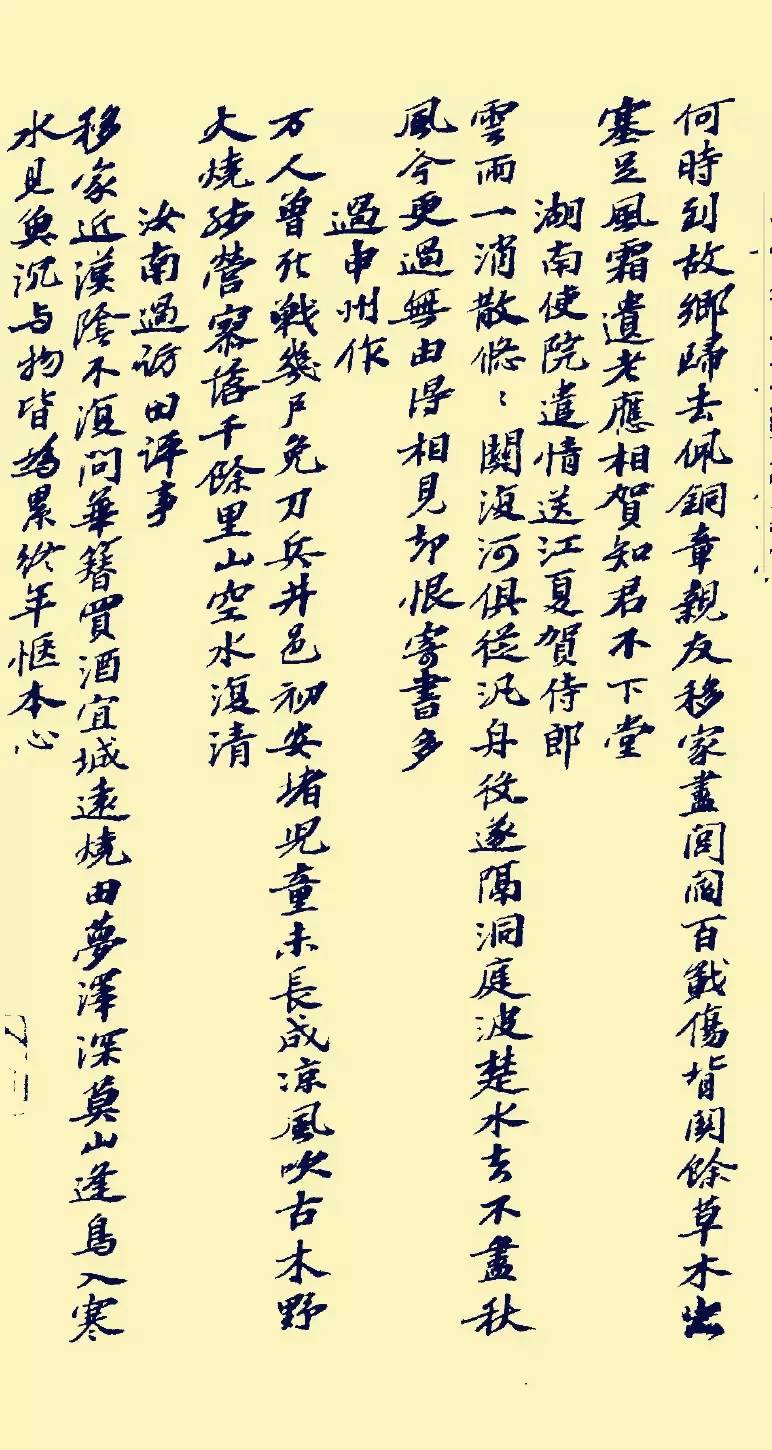 何時到故鄉歸去佩銅章親友移家盡閭閻百戰傷背関餘草木出
塞足風霜遺老應相賀知君不下堂
湖南使院遣情送江夏賀侍郎
雲雨一消散悠〻關復河俱從汎舟役遂隔洞庭波楚水去不盡秋
風今更過無由得相見却恨寄書多
過申州作
万人曾死戰幾戶免刀兵井邑初安堵兒童未長成涼風吹古木野
火燒殘營寥落千餘里山空水復清
汝南過訪田評事
移家近漢陰不復問華簪買酒宜城遠燒田夢澤深莫山逢鳥入寒
水見魚沉与物皆為累終年愜本心